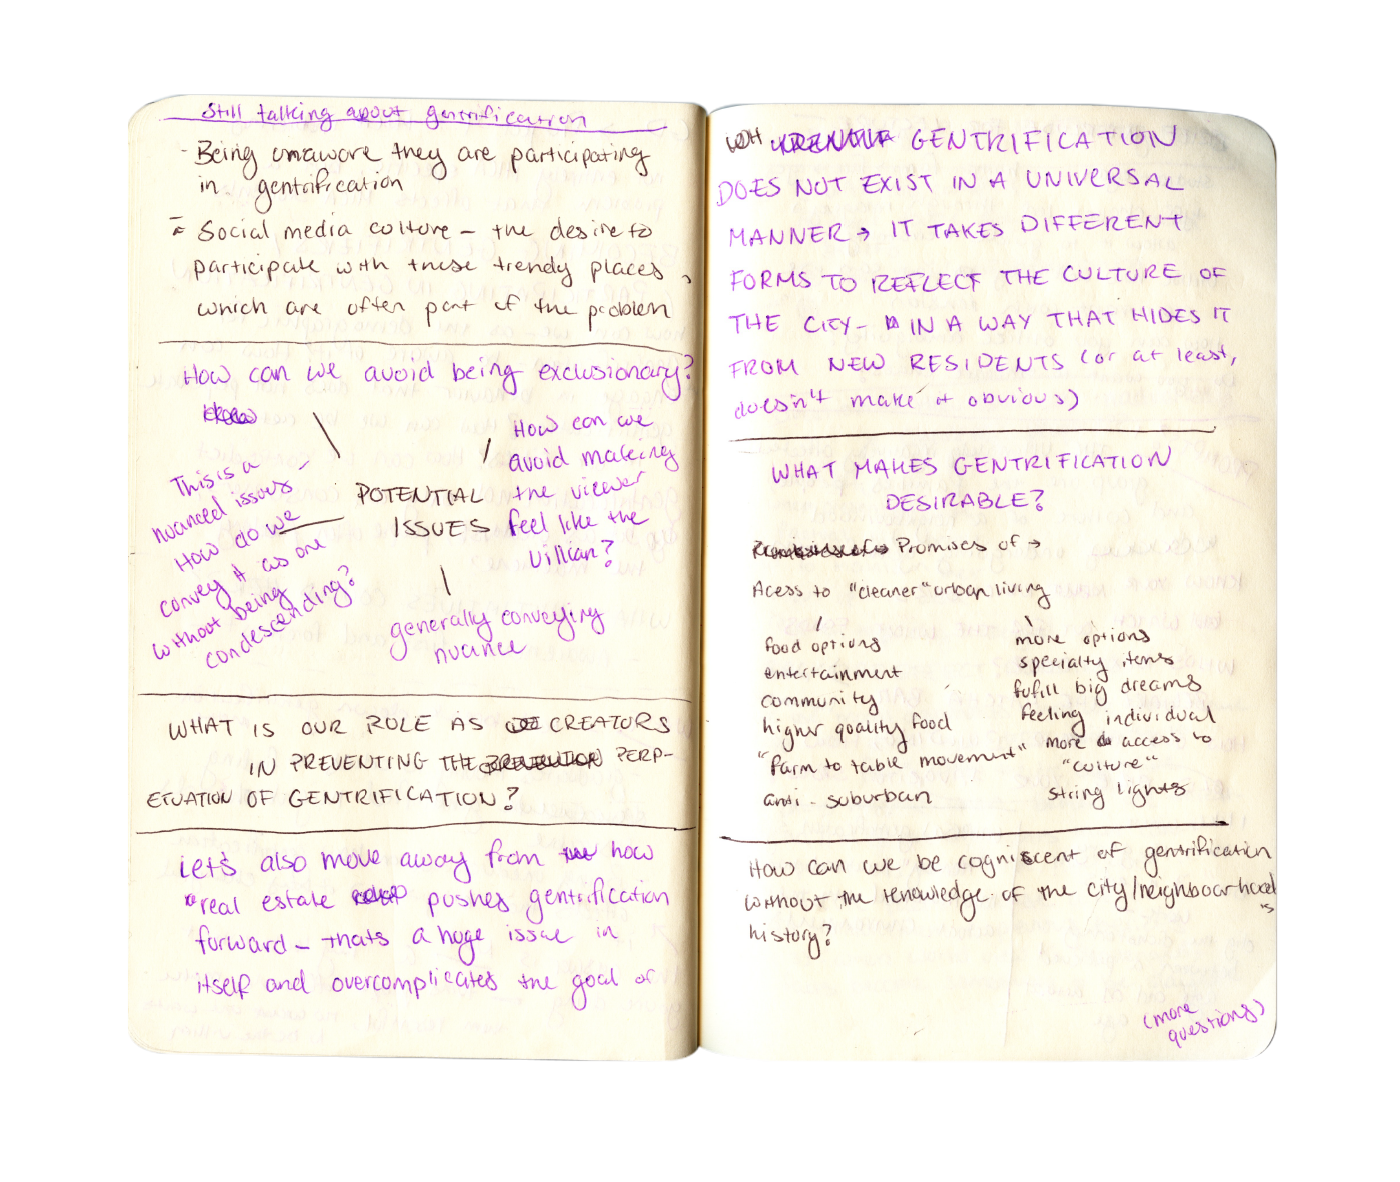 Still talking about gentrification
- Being unaware they are participating
in gentification
- Social media culture - the desire to
participate with these trendy places,
which are often part of the problem
How can we avoid being exclusionary?
This is a
nuanced issues
How do we
convey it as one
without being
condescending?
POTENTIAL
ISSUES
How can we
avoid making
the viewer
feel like the
villian?
generally conveying
nuance
WHAT IS OUR ROLE AS CREATORS
IN PREVENTING THE PERP-
ETUATION OF GENTRIFICATION?
Let's also move away from how
real estate pushes gentrification
forward - thats a huge issue in
itself and overcomplicates the goal of
GENTRIFICATION
DOES NOT EXIST IN A UNIVERSAL
MANNER → IT TAKES DIFFERENT
FORMS TO REFLECT THE CULTURE OF
THE CITY - IN A WAY THAT HIDES IT
FROM NEW RESIDENTS (or at least,
doesn't make it obvious)
WHAT MAKES GENTRIFICATION
DESIRABLE?
Promises of →
Acess to "cleaner" urban living
food options
entertainment
community
higher quality food
"farm to table movement"
anti-suburban
more options
specialty items
fufill big dreams
feeling individual
more access to
"culture"
string lights
How can we be cogniscent of gentrification
without the knowledge of the city/neighbourhood
's
history?
(more
questions)